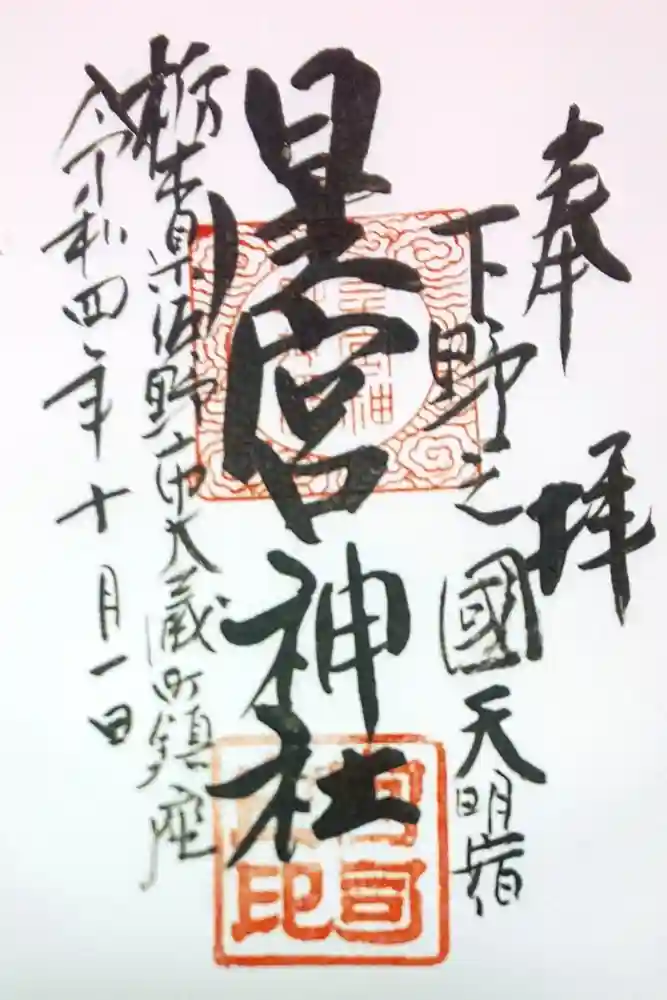 奉拝
下野之國天明宿
星宮神社
栃木県佐野市大蔵町鎮座
令和四年十月一日
宮司
印